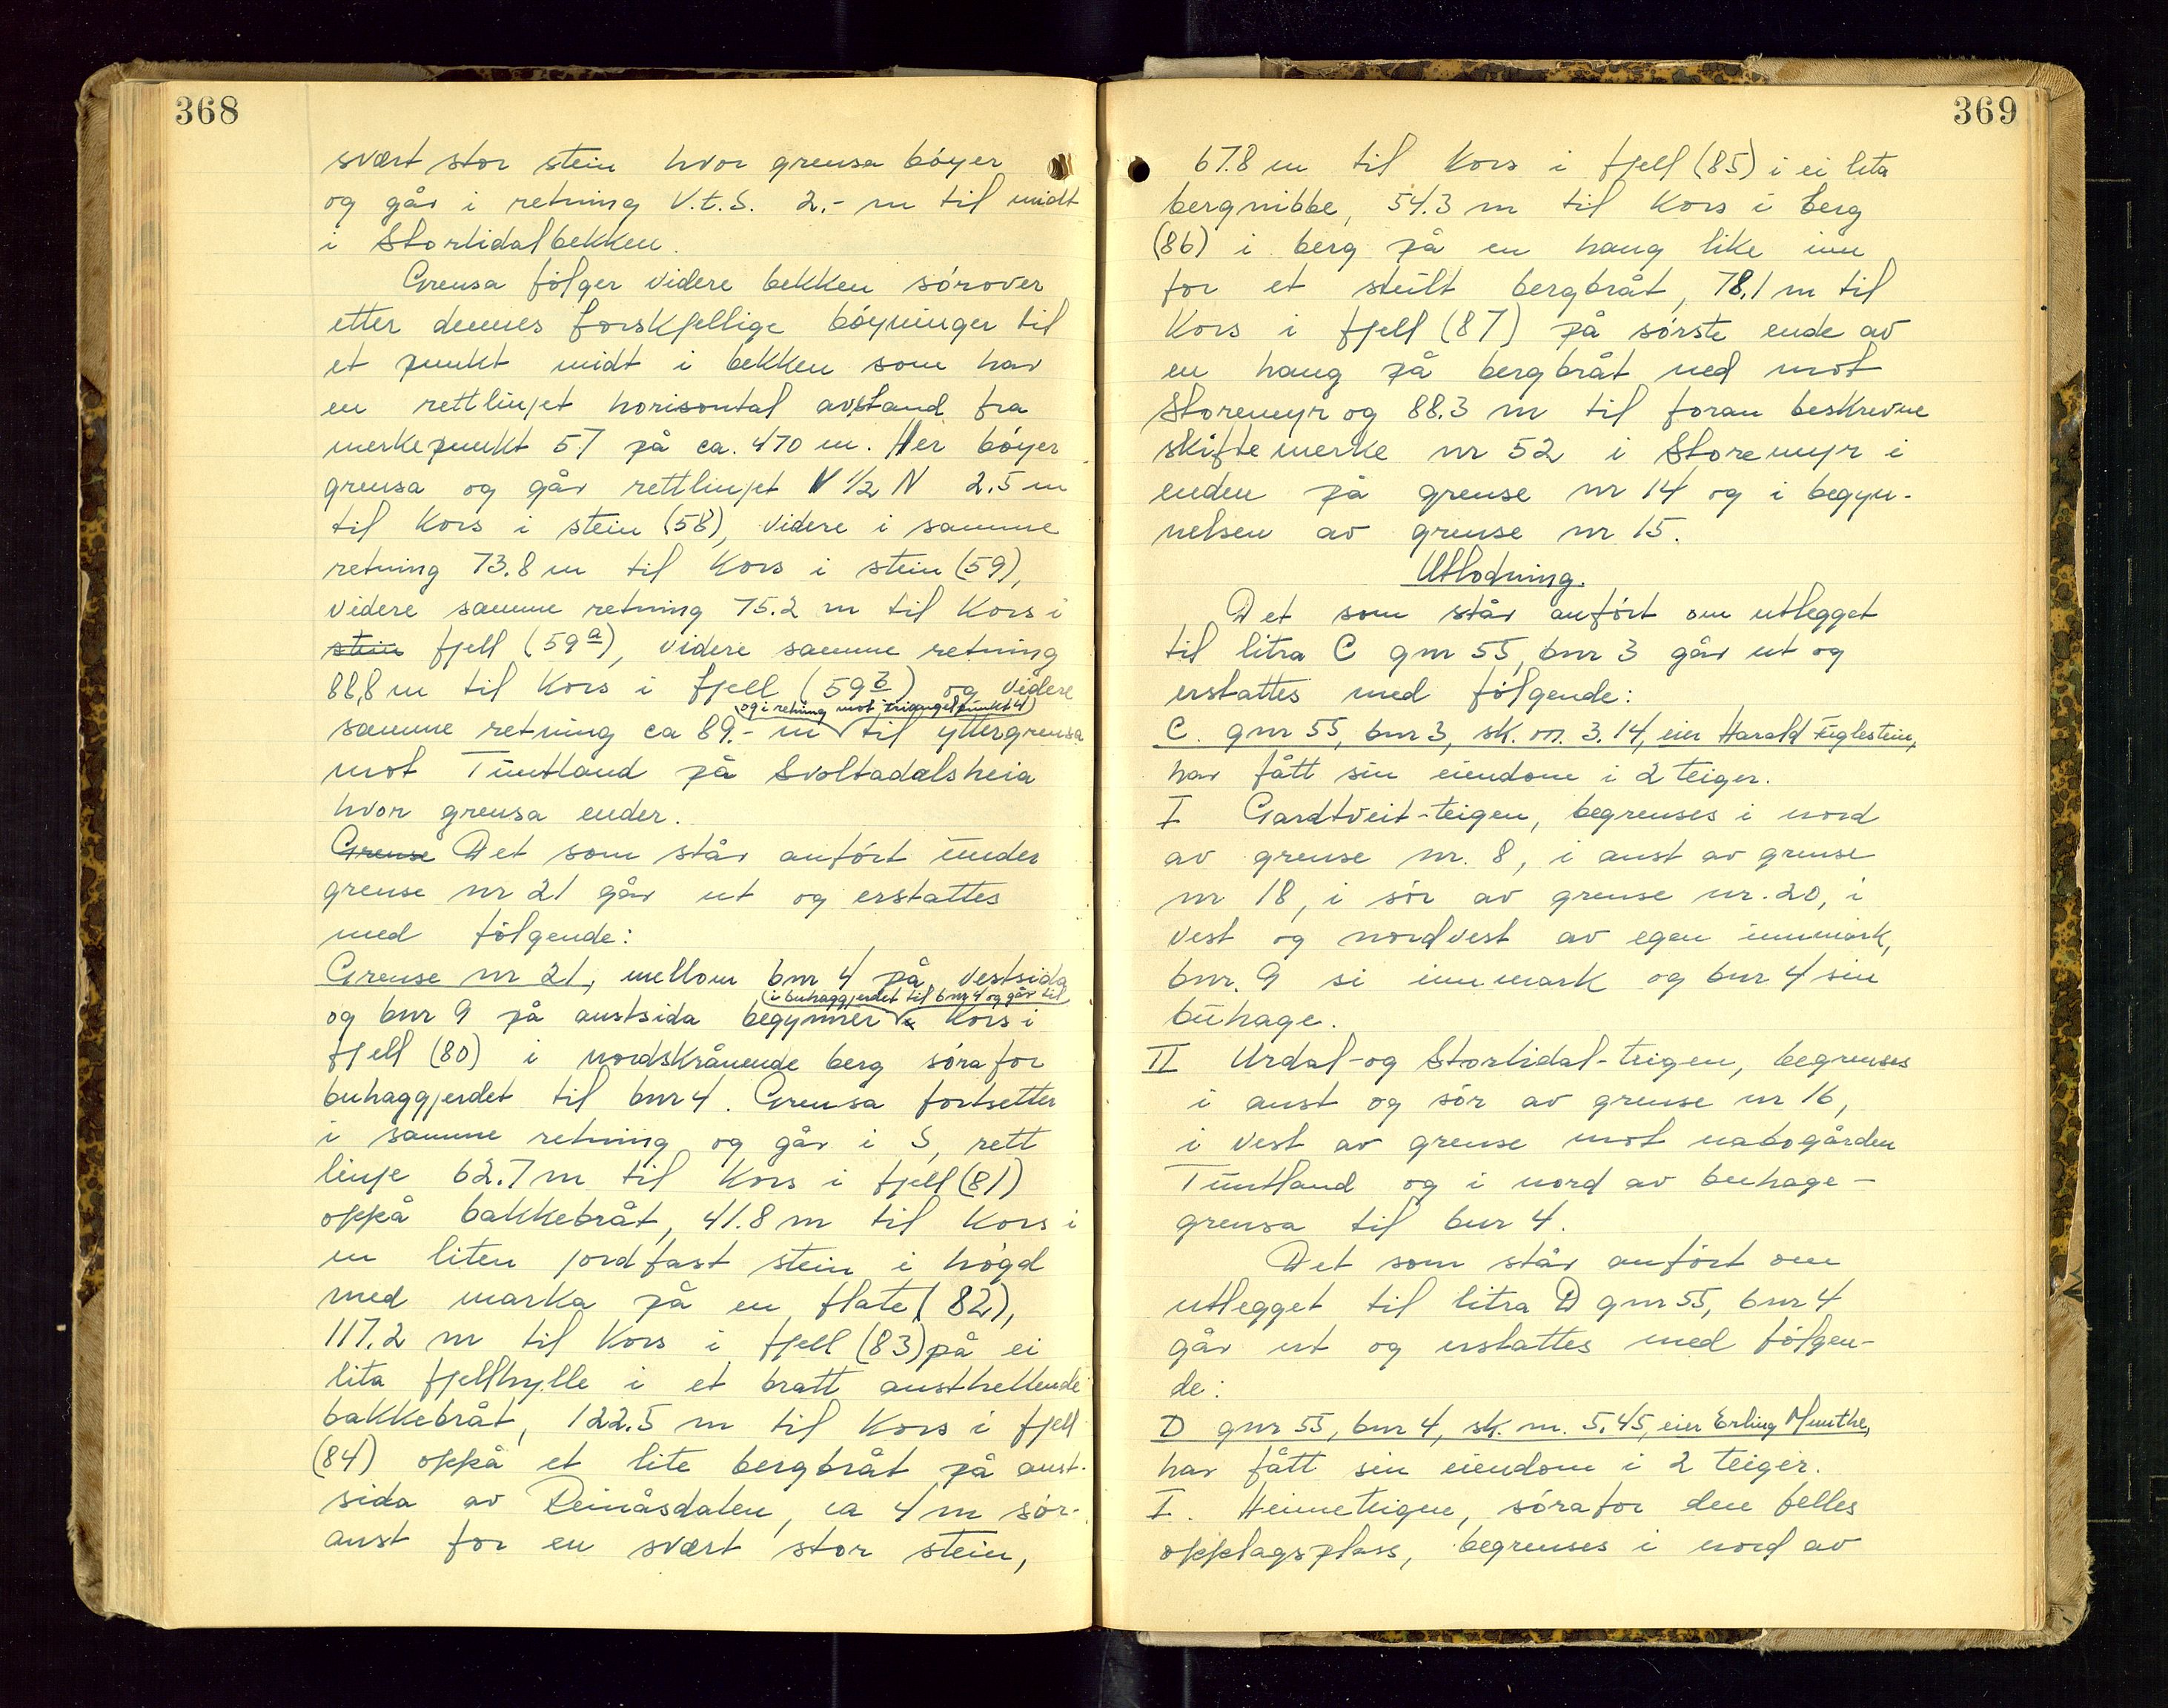 368
svært stor stein hvor grensa bøyer
og går i retning V.t.S. 2.- m til midt
i Storlidalbekken.
Grensa følger videre bekken sørover
etter dennes forskjellige bøyninger til
et punkt midt i bekken som har
en rettlinjet horisontal avstand fra
merkepunkt 57 på ca. 470 m. Her bøyer
grensa og går rettlinjet V ½ N 2.5 m
til kors i stein (58), videre i samme
retning 73.8 m til kors i stein (59),
videre samme retning 75.2 m til kors i
stein fjell (59a), videre samme retning
88,8 m til kors i fjell (59b) og videre
(og i retning mot triangelpunkt 4)
samme retning ca 89.- m til yttergrensa
mot Tuntland på Svoltadalsheia
hvor grensa ender.
Grense Det som står anført under
grense nr 21 går ut og erstattes
med følgende:
Grense nr 21, mellom bnr 4 på vestsida
(i buhaggjerdet til bnr 4 og går til
og bnr 9 på austsida begynner i kors i
fjell (80) i nordskrånende berg sørafor
buhaggjerdet til bnr 4. Grensa fortsetter
i samme retning og går i S, rett
linje 62.7 m til kors i fjell (81)
oppå bakkebråt, 41.8 m til kors i
en liten jordfast stein i høgd
med marka på en flate (82),
117.2 m til kors i fjell (83) på ei
lita fjellhylle i et bratt austhellende
bakkebråt, 122.5 m til kors i fjell
(84) oppå et lite bergbråt på aust-
sida av Deinåsdalen, ca 4 m sør-
aust for en svært stor stein,
369
67.8 m til kors i fjell (85) i ei lita
bergnibbe, 54.3 m til kors i berg
(86) i berg på en haug like inn
for et steilt bergbråt, 78.1 m til
kors i fjell (87) på sørste ende av
en haug på bergbråt ned mot
Storemyr og 88.3 m til foran beskrevne
skiftemerke nr 52 i Storemyr i
enden på grense nr 14 og i begyn-
nelsen av grense nr 15.
Utlodning.
Det som står anført om utlegget
til litra C gnr 55, bnr 3 går ut og
erstattes med følgende:
C. gnr 55, bnr 3, sk. m. 3.14, eier Harald Fuglestein,
har fått sin eiendom i 2 teiger.
I Gardtveit-teigen, begrenses i nord
av grense nr. 8, i aust av grense
nr 18, i sør av grense nr. 20, i
vest og nordvest av egen innmark,
bnr. 9 si innmark og bnr 4 sin
buhage.
II Urdal- og Storlidal-teigen, begrenses
i aust og sør av grense nr 16,
i vest av grense mot nabogården
Tuntland og i nord av buhage-
grensa til bnr 4.
Det som står anført om
utlegget til litra D gnr 55, bnr 4
går ut og erstattes med følgen-
de:
D gnr 55, bnr 4, sk. m. 5.45, eier Erling Munthe,
har fått sin eiendom i 2 teiger.
I. Heimeteigen, sørafor den felles
opplagsplass, begrenses i nord av